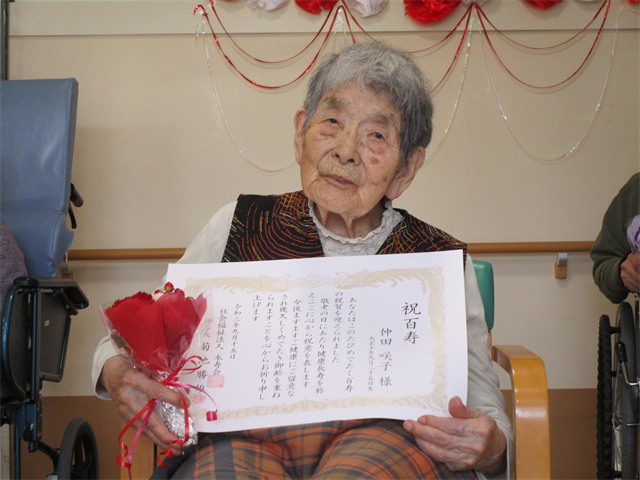 祝百寿
仲田 咲子 様
あなたはこのたびめでたく百寿
の祝賀を迎えられました
敬老の日にあたり健康長寿を称
えここに心から祝意を表します
今後ますますご健康にご留意な
され幾久しくめでたき御齢を重ね
られますことを心からお祈り申し
上げます
令和三年九月十五日
社会福祉法人 永寿会
菊地 勝